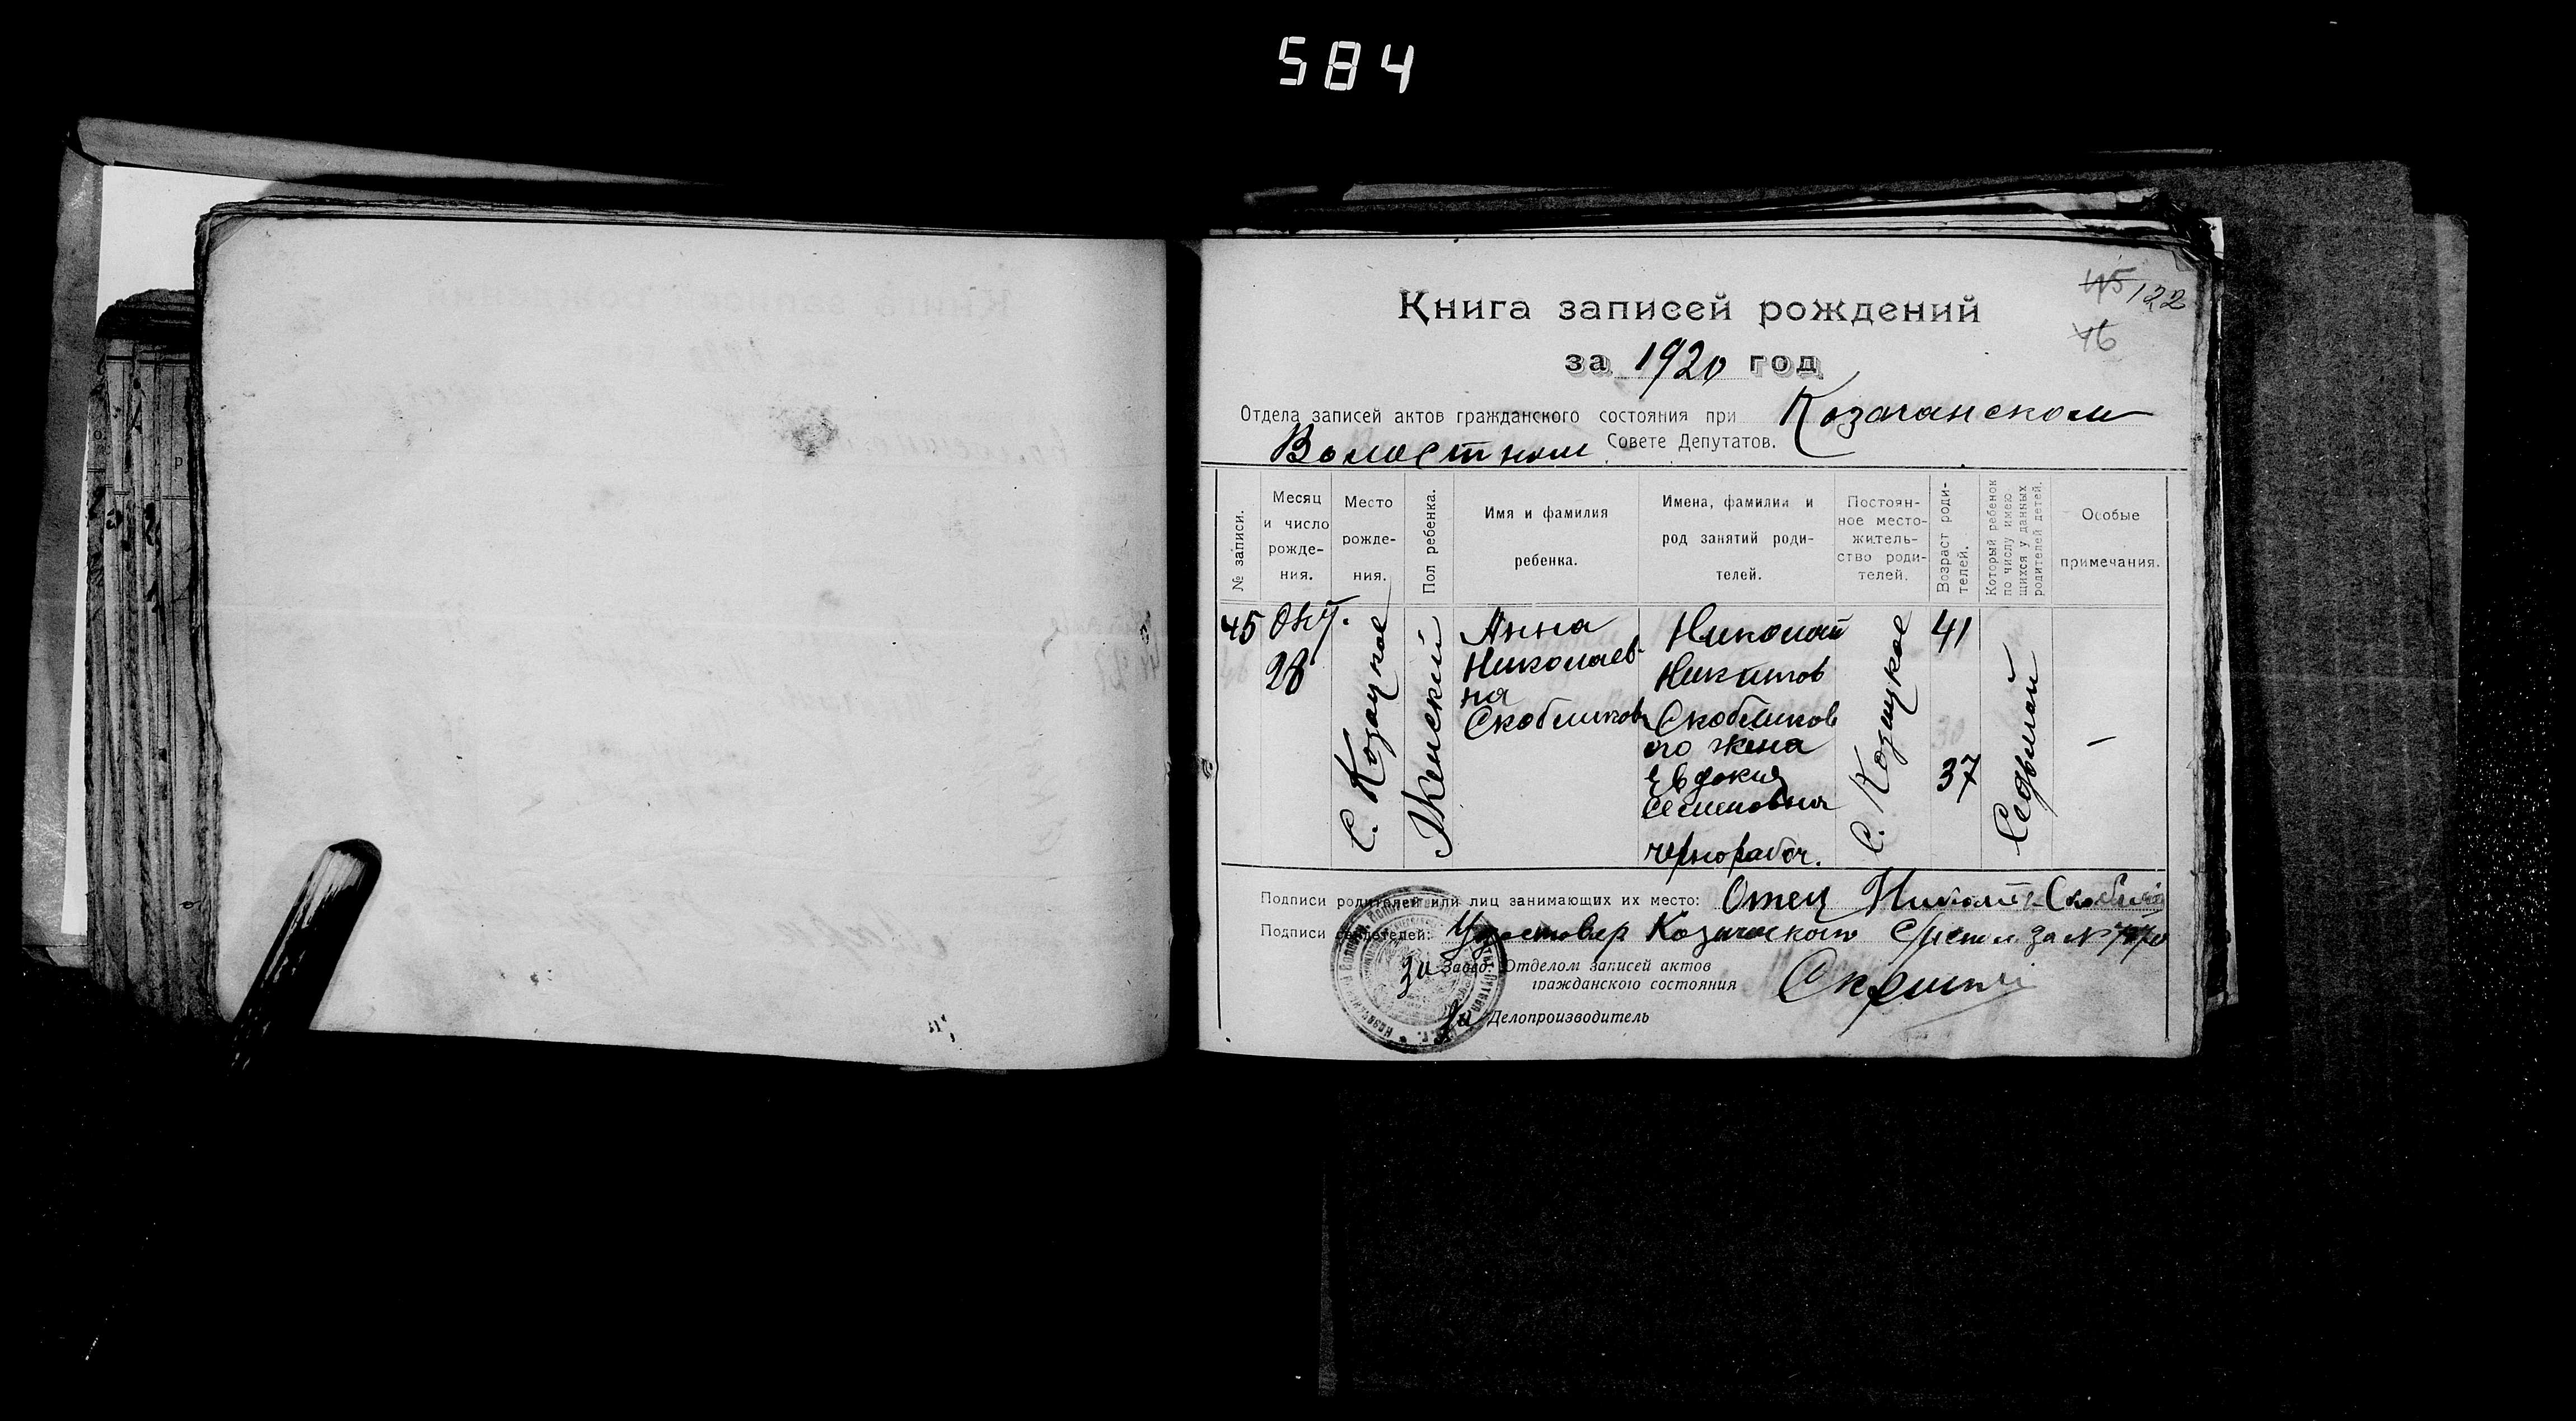 584
45 122
46
Книга записей рождений
за 1920 год
Отдела записей актов гражданского состояния при Козачанском
Волостном Совете Депутатов.
№ записи.
Месяц
и число
рожде-
ния.
Место
рожде-
ния.
Пол ребенка.
Имя и фамилия
ребенка.
Имена, фамилии и
род занятий роди-
телей.
Постоян-
ное место-
житель-
ство роди-
телей.
Возраст роди-
телей.
Который ребенок
по числу имею
щихся у данных
родителей детей.
Особые
примечания.
45
Окт.
28
С. Козацкое
Женский
Анна
Николаев-
на
Скобликов
Николай
Никитов
Скобликов
его жена
Евдокия
Семеновна
чернорабоч.
С. Козацкое
41
37
Седьмой
–
Подписи родителей или лиц занимающих их место: Отец Николай
Подписи свидетелей: Удостовер Козачанского за №
За Завед. Отделом записей актов
гражданского состояния
За Делопроизводитель